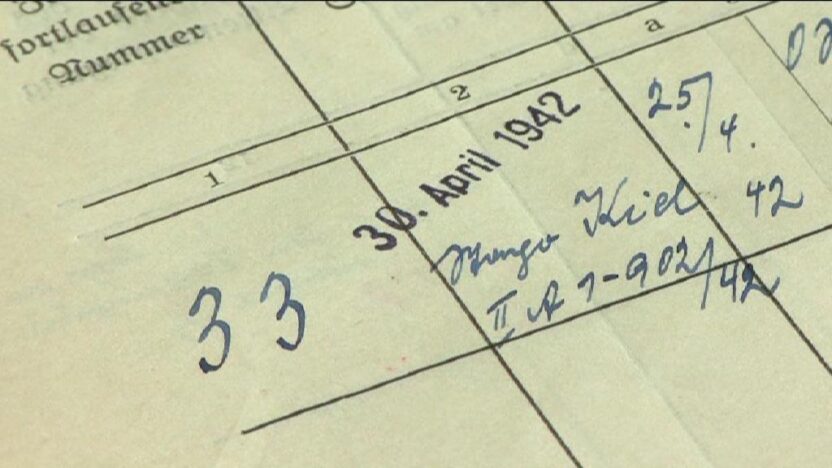 fortlaufende
Nummer
1
2
a
33
30. April 1942
Kiel
II A 1-902/42
25/4.
42